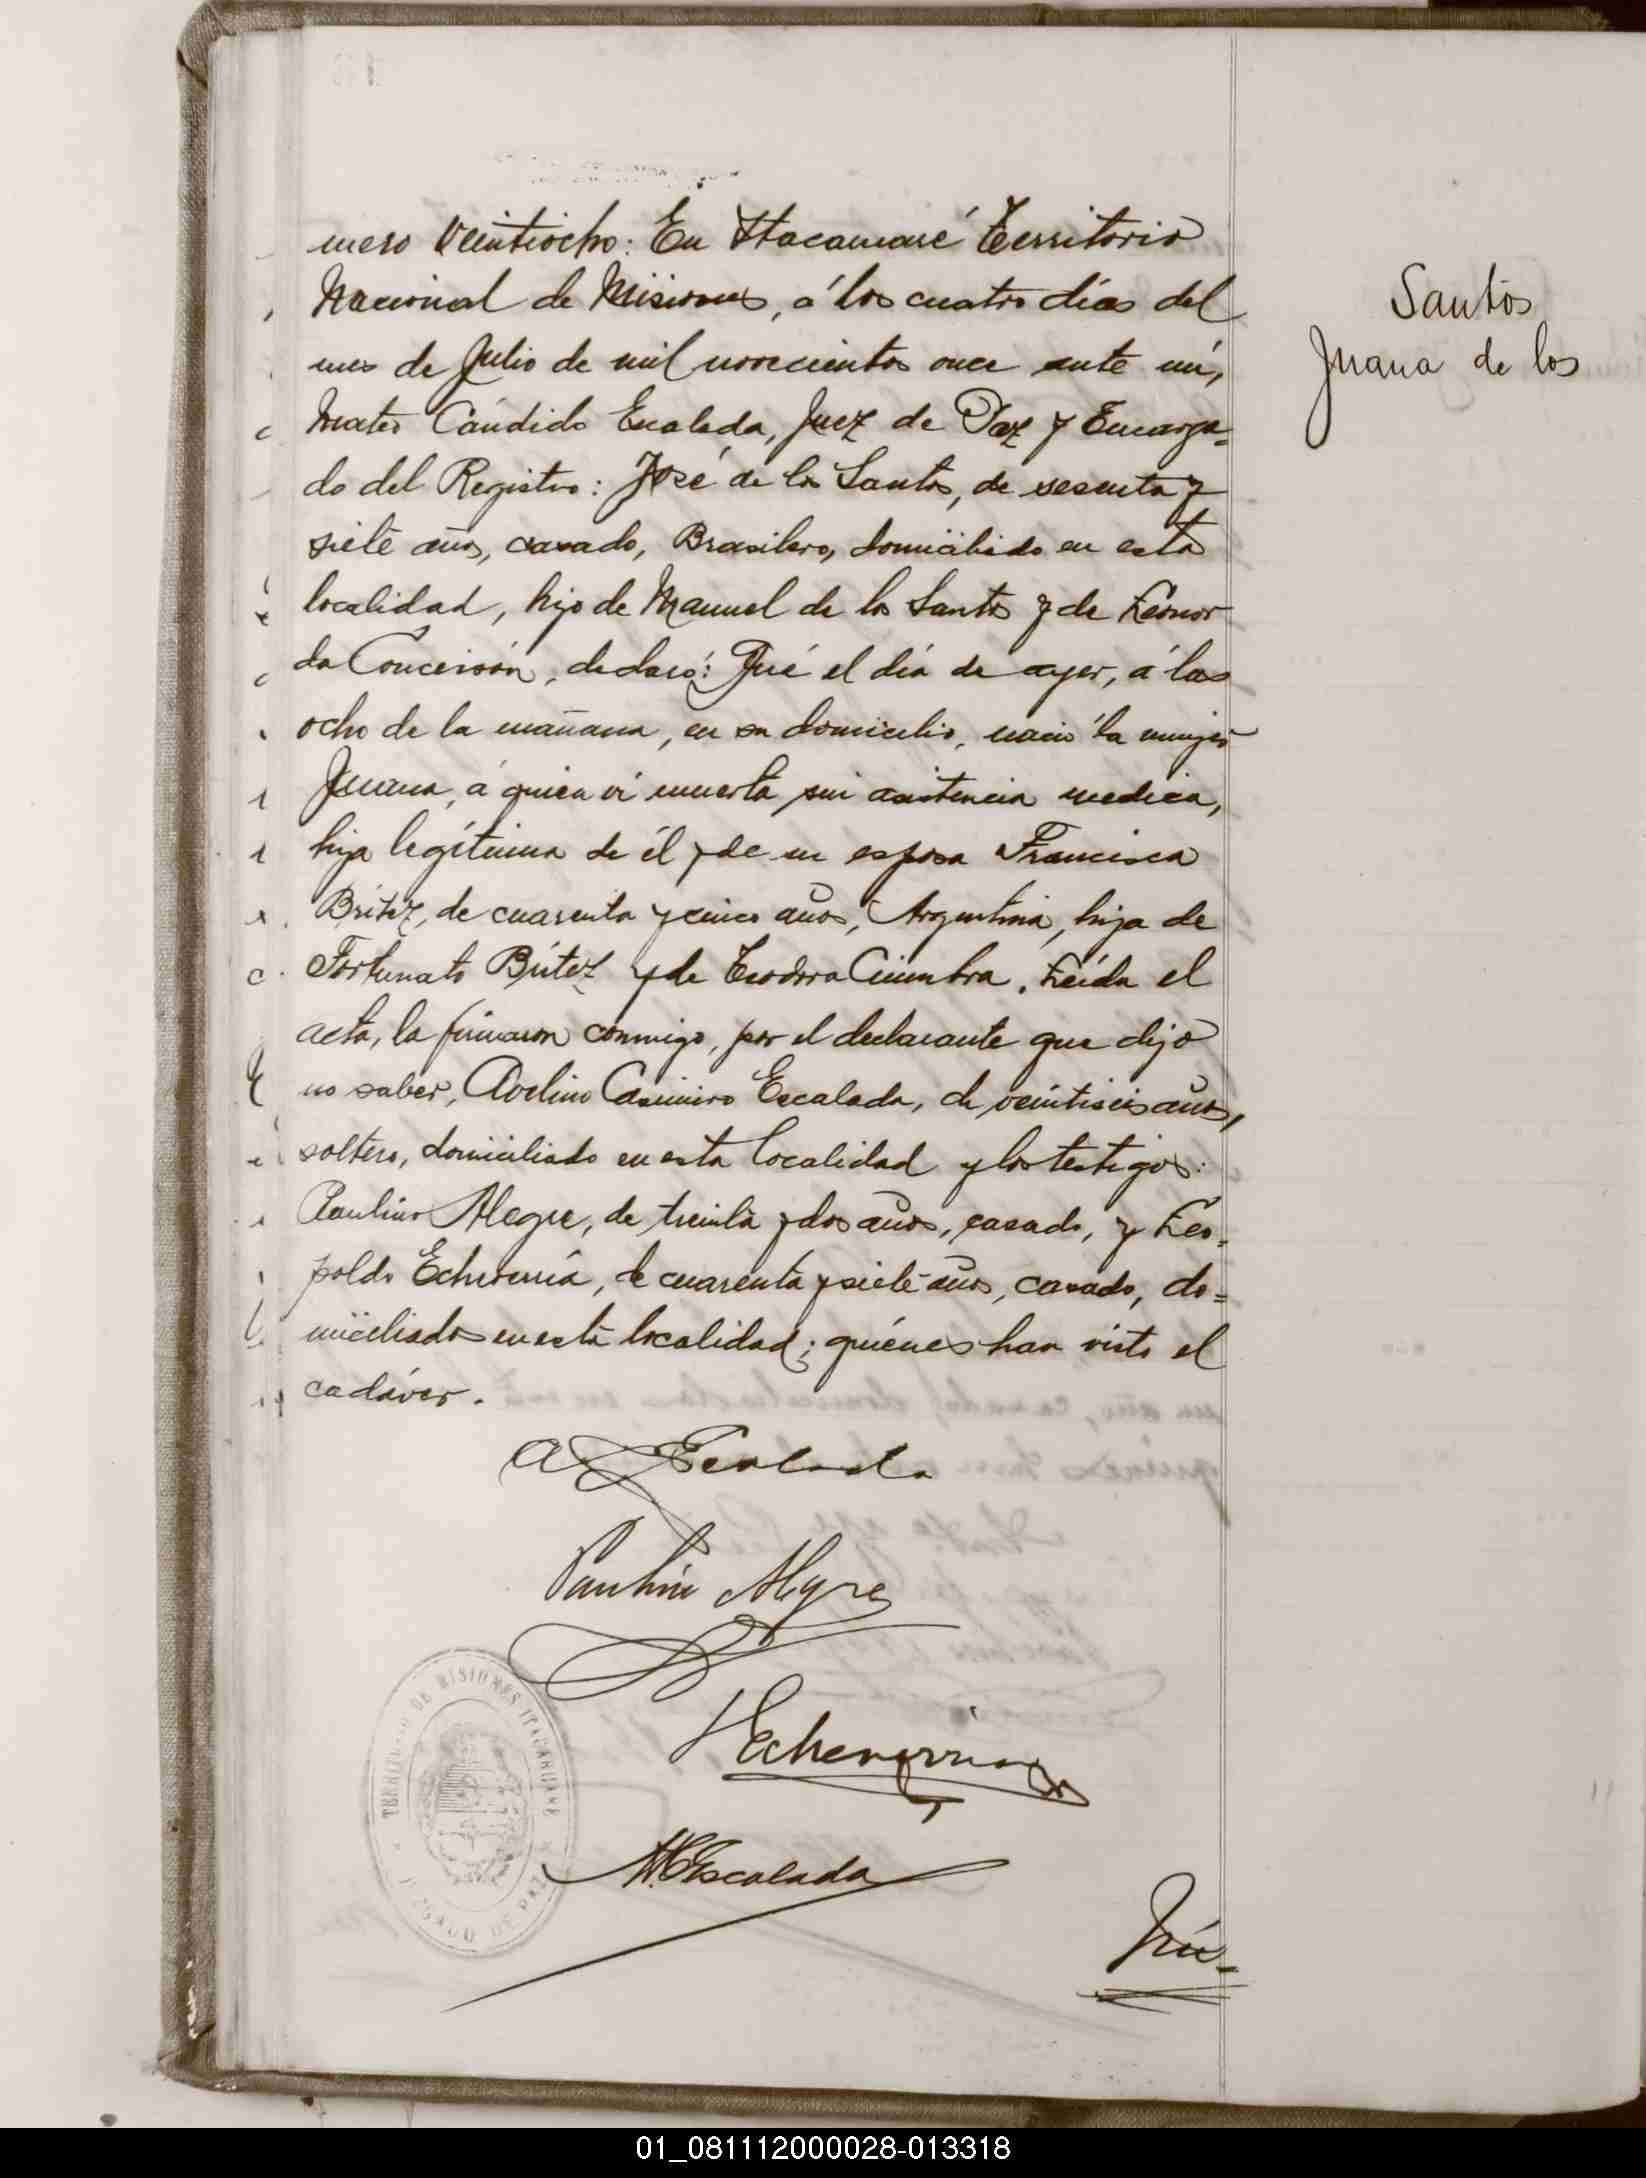 mero Veintiocho: En Itacaruaré Territorio
Nacional de Misiones, á los cuatro días del
mes de Julio de mil novecientos once ante mí,
Mateo Cándido Escalada, Juez de Paz y Encarga=
do del Registro: José de los Santos, de sesenta y
siete años, casado, Brasilero, domiciliado en esta
localidad, hijo de Manuel de los Santos y de Leonor
da Conceisón, declaró: Qué el día de ayer, á las
ocho de la mañana, en su domicilio, nació la mujer
Juana, á quien ví muerta sin asistencia medica,
hija legítima de él y de su esposa Francisca
Brítez, de cuarenta y cinco años, Argentina, hija de
Fortunato Brítez y de Teodora . Leída el
acta, la firmaron conmigo, por el declarante que dijo
no saber, Avelino Casimiro Escalada, de veintiseis años,
soltero, domiciliado en esta localidad y los testigos:
Paulino Alegre, de treinta y dos años, casado, y Leo=
poldo Echeverría, de cuarenta y siete años, casado, do=
miciliados en esta localidad; quiénes han visto el
cadáver.
A Escalada
Paulino Alegre
L Echeverria
M.C.Escalada
TERRITORIO DE MISIONES ITACARUARÉ
JUZGADO DE PAZ
Santos
Juana de los
01_081112000028-013318